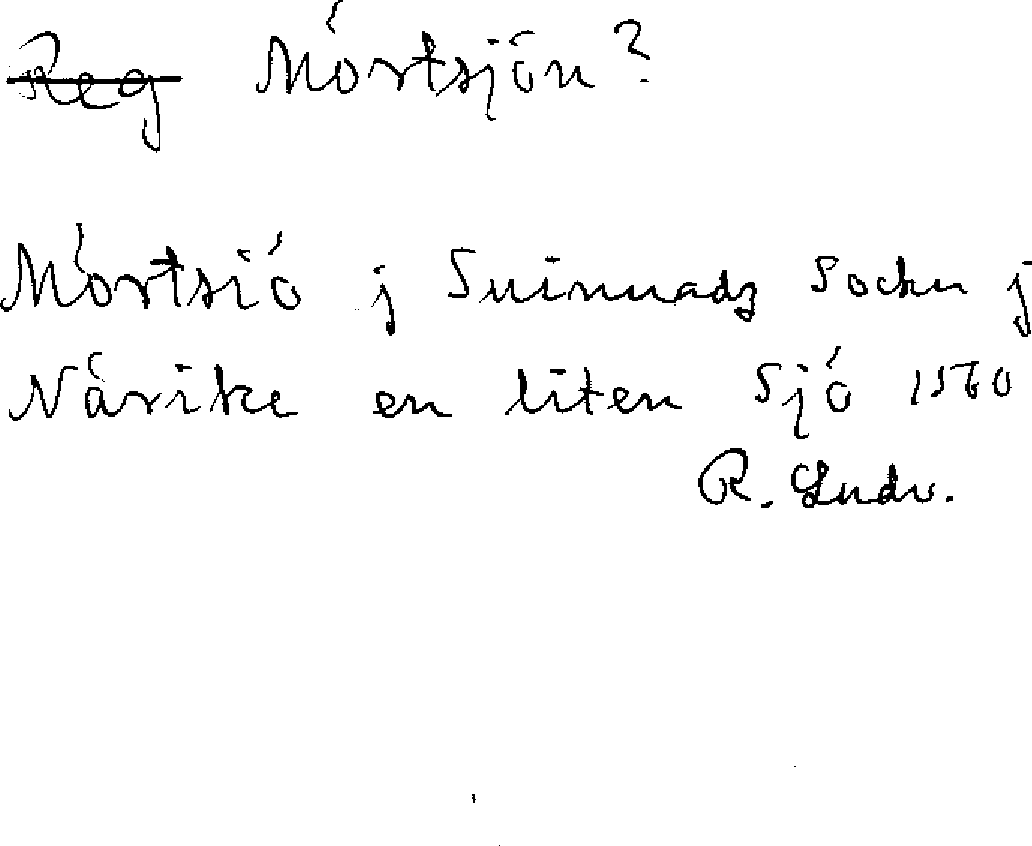 Reg Mörtsjön?
Mörtsiö j Suinnadz Sockn j
Närike en liten Sjö 1560
R. Ludv.